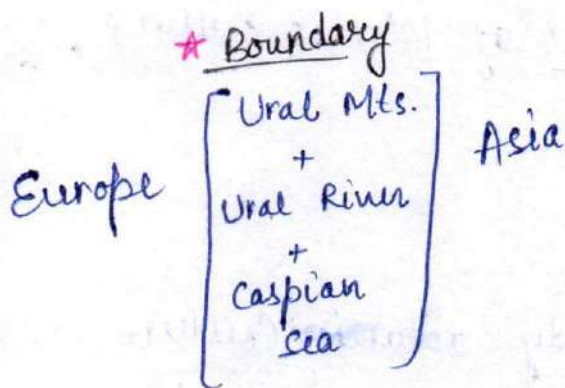 ★ Boundary
Europe [ Ural Mts. ] Asia
+
Ural River
+
Caspian
sea